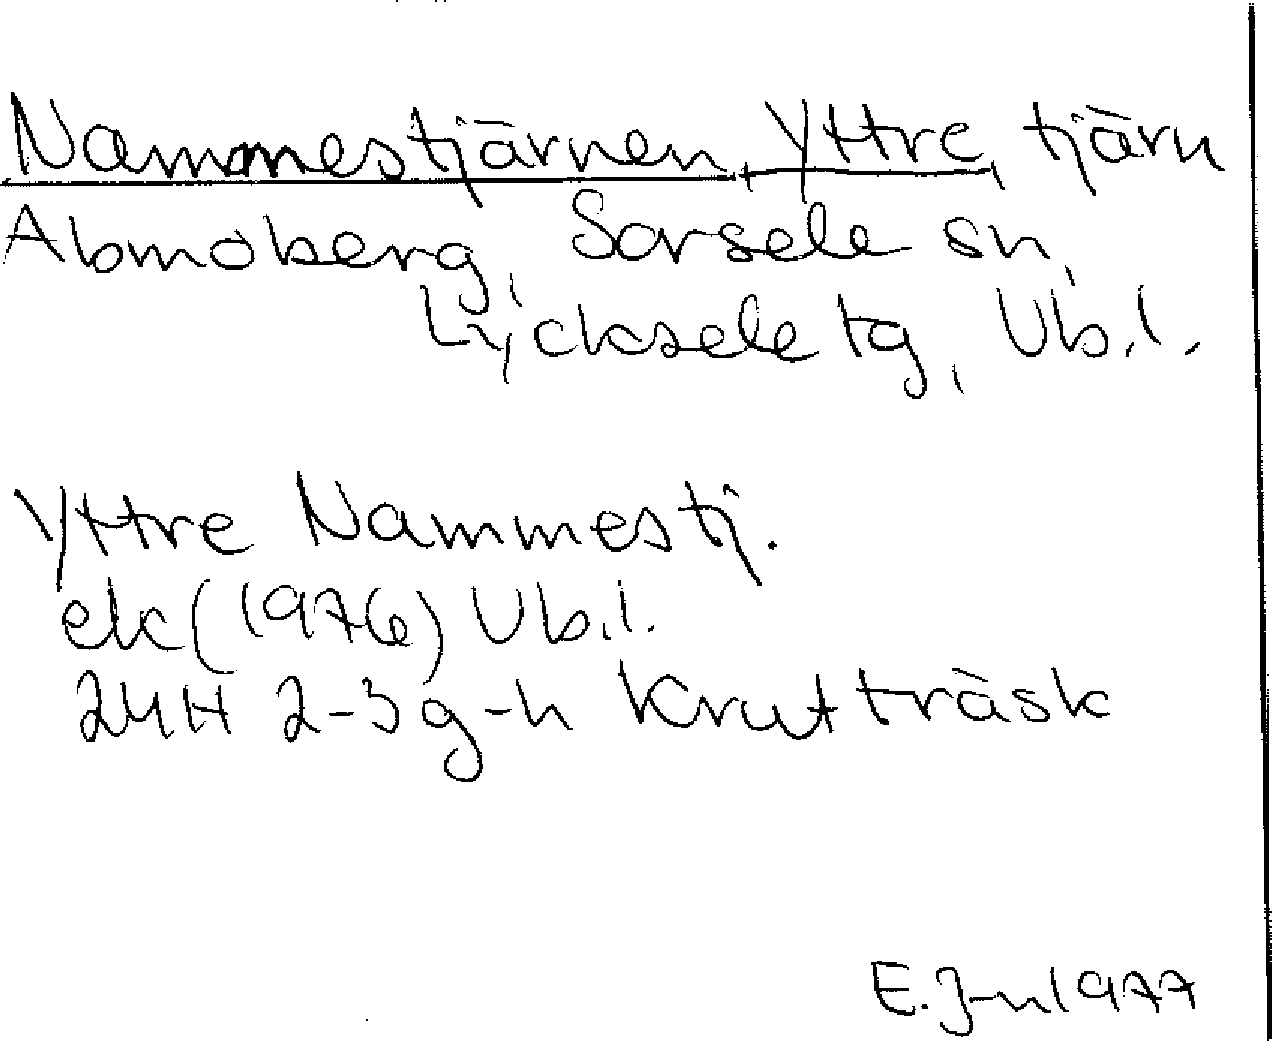 Nammestjärnen, Yttre, tjärn
Abmoberg, Sorsele sn,
Lycksele tg, Vb.l.
Yttre Nammestj.
ek (1976) Vb.l.
24H 2-3 g-h Krutträsk
E. J-n 1977